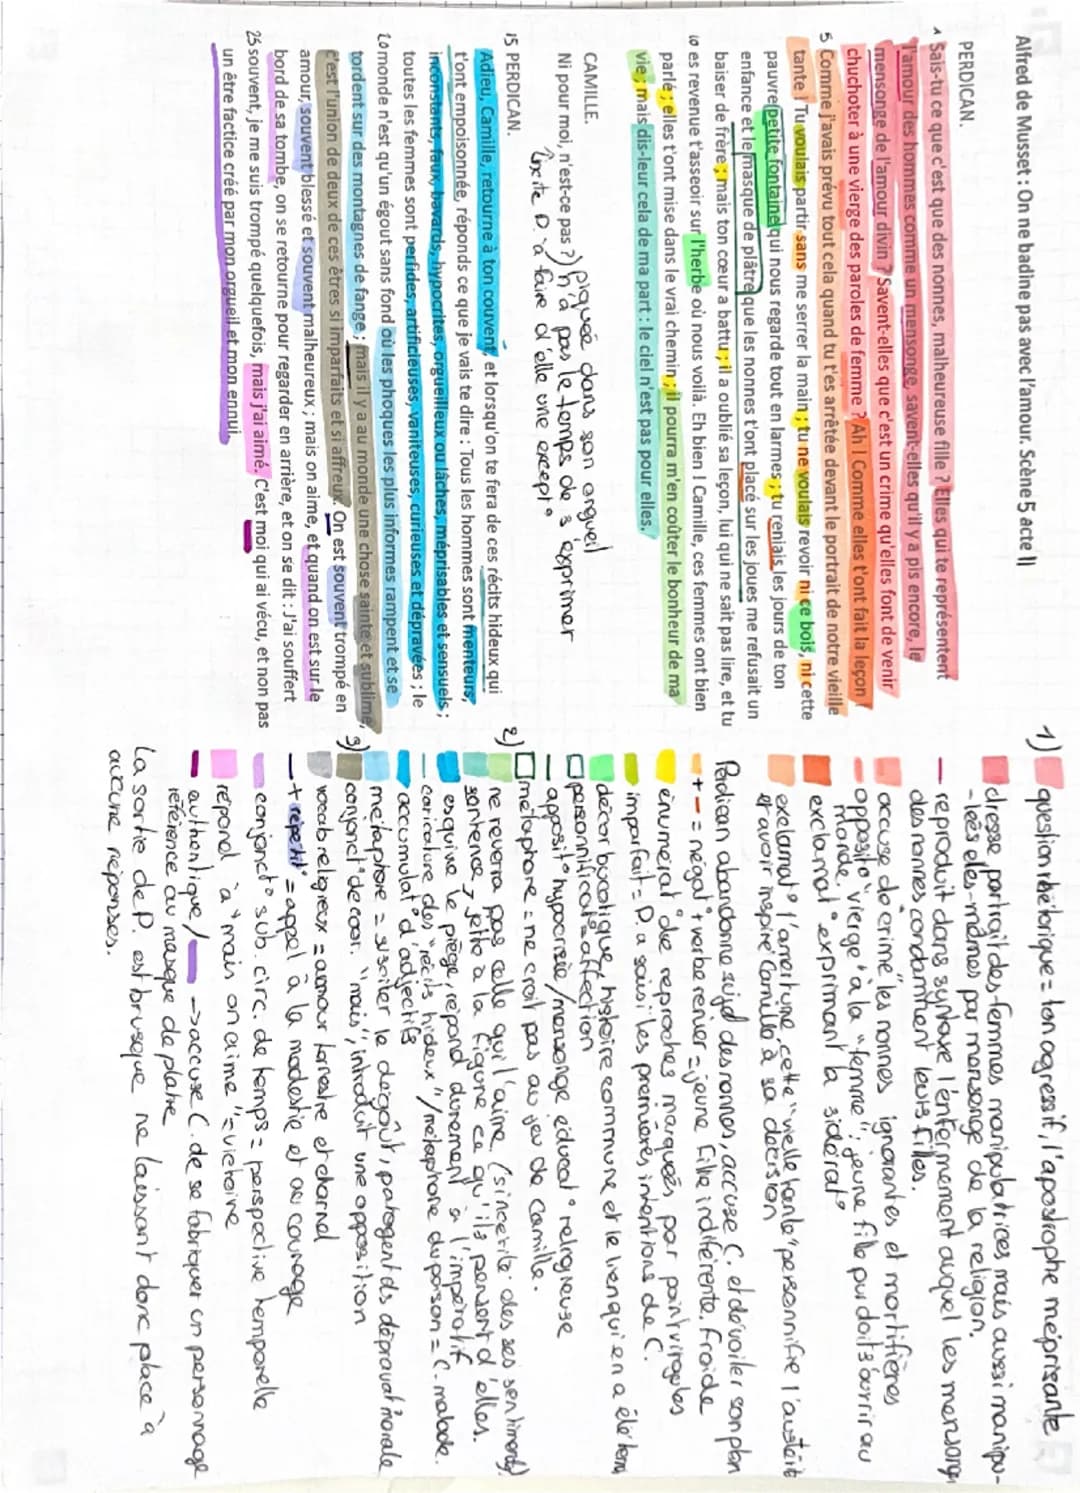 Alfred de Musset : On ne badine pas avec l'amour. Scène 5 acte II
PERDICAN.
1 Sais-tu ce que c'est que des nonnes, malheureuse fille ? Elles qui te représentent
l'amour des hommes comme un mensonge, savent-elles qu'il y a pis encore, le
mensonge de l'amour divin ? Savent-elles que c'est un crime qu'elles font de venir
chuchoter à une vierge des paroles de femme ? Ah ! Comme elles t'ont fait la leçon !
5 Comme j'avais prévu tout cela quand tu t'es arrêtée devant le portrait de notre vieille
tante ! Tu voulais partir sans me serrer la main ; tu ne voulais revoir ni ce bois, ni cette
pauvre petite fontaine qui nous regarde tout en larmes ; tu reniais les jours de ton
enfance et le masque de plâtre que les nonnes t'ont placé sur les joues me refusait un
baiser de frère ; mais ton cœur a battu ; il a oublié sa leçon, lui qui ne sait pas lire, et tu
10 es revenue t'asseoir sur l'herbe où nous voilà. Eh bien ! Camille, ces femmes ont bien
parlé ; elles t'ont mise dans le vrai chemin ; il pourra m'en coûter le bonheur de ma
vie ; mais dis-leur cela de ma part : le ciel n'est pas pour elles.
CAMILLE.
Ni pour moi, n'est-ce pas ?
piquée dans son orgueil
n'a pas le temps de s'exprimer
incite P. à faire d'elle une except°
15 PERDICAN.
Adieu, Camille, retourne à ton couvent, et lorsqu'on te fera de ces récits hideux qui
t'ont empoisonnée, réponds ce que je vais te dire : Tous les hommes sont menteurs,
inconstants, faux, bavards, hypocrites, orgueilleux ou lâches, méprisables et sensuels ;
toutes les femmes sont perfides, artificieuses, vaniteuses, curieuses et dépravées ; le
20 monde n'est qu'un égout sans fond où les phoques les plus informes rampent et se
tordent sur des montagnes de fange ; mais il y a au monde une chose sainte et sublime,
c'est l'union de deux de ces êtres si imparfaits et si affreux. On est souvent trompé en
amour, souvent blessé et souvent malheureux ; mais on aime, et quand on est sur le
bord de sa tombe, on se retourne pour regarder en arrière, et on se dit : J'ai souffert
25 souvent, je me suis trompé quelquefois, mais j'ai aimé. C'est moi qui ai vécu, et non pas
un être factice créé par mon orgueil et mon ennui.
1) question rhétorique = ton agressif, l'apostrophe méprisante
dresse portrait des femmes manipulatrices mais aussi manipu-
-lées elles-mêmes par mensonge de la religion.
reproduit dans syntaxe l'enfermement auquel les mensonges
des nonnes condamnent leurs filles.
accuse de "crime" les nonnes ignorantes et mortifières
opposit° "vierge" à la "femme" : jeune fille pur doit s'ouvrir au
monde.
exclamat° exprimant la sidérat°
exclamat° l'amertume, cette "vieille tante" personnifie l'austérité
et avoir inspiré Camille à sa décision
Perdican abandonne sujet des nonnes, accuse C. et dévoiler son plan
+ - = négat° + verbe renier = jeune fille indiférente, froide
énumérat° de reproches marqués par point virgules
imparfait = P. a saisi les premières intentions de C.
décor bucolique, histoire commune et le lien qui en a été
personnificat° = affection
opposit° hypocrisie/mensonge éducat° religieuse
métaphore = ne croit pas au jeu de Camille.
2) ne reverra pas celle qui l'aime (sincérité des ses sentiments)
sentence, jette à la figure ce qu'ils pensent d'elles.
esquive le piège, répond durement à l'impératif
caricature des "récits hideux"/métaphore du poison = C. malade.
accumulat° d'adjectifs
métaphore = susciter le dégoût, partagent dépravat° morale
3) conjonct° de coor. "mais", introduit une opposition
vocab religieux = amour terrestre et charnel
+ répétit° = appel à la modestie et au courage
conjonct° sub. circ. de temps = perspective temporelle
répond à "mais on aime" = victoire
authentique/ —> accuse C. de se fabriquer un personnage
référence au masque de platre
La sortie de P. est brusque ne laissant donc place à
aucune réponses.